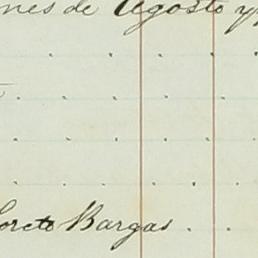 mes de Agosto y
Loreto Bargas